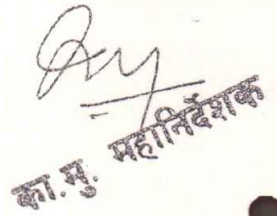 का.मु. महानिर्देशक